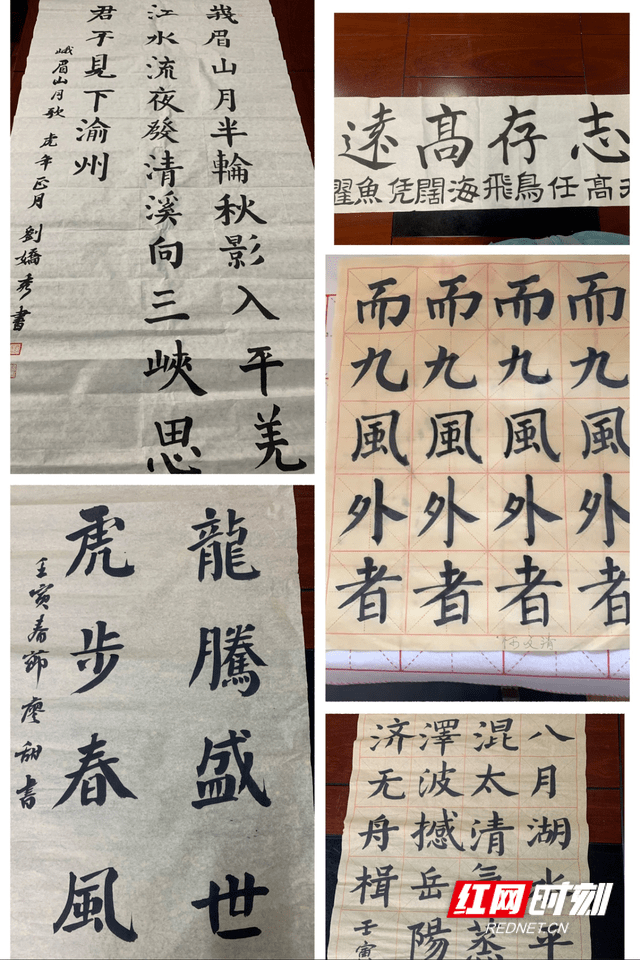 峩眉山月半輪秋影入平羌
江水流夜發清溪向三峽思
君不見下渝州
峨眉山月歌 虎年正月 劉嬌秀書
志存高遠
高任鳥飛海闊凭魚
而九風外者
而九風外者
而九風外者
而九風外者
龍騰盛世
虎步春風
壬寅春節廖甜書
八月湖水平
混太清氣蒸
澤波撼岳陽
济无舟楫壬寅
红网时刻
REDNET.CN